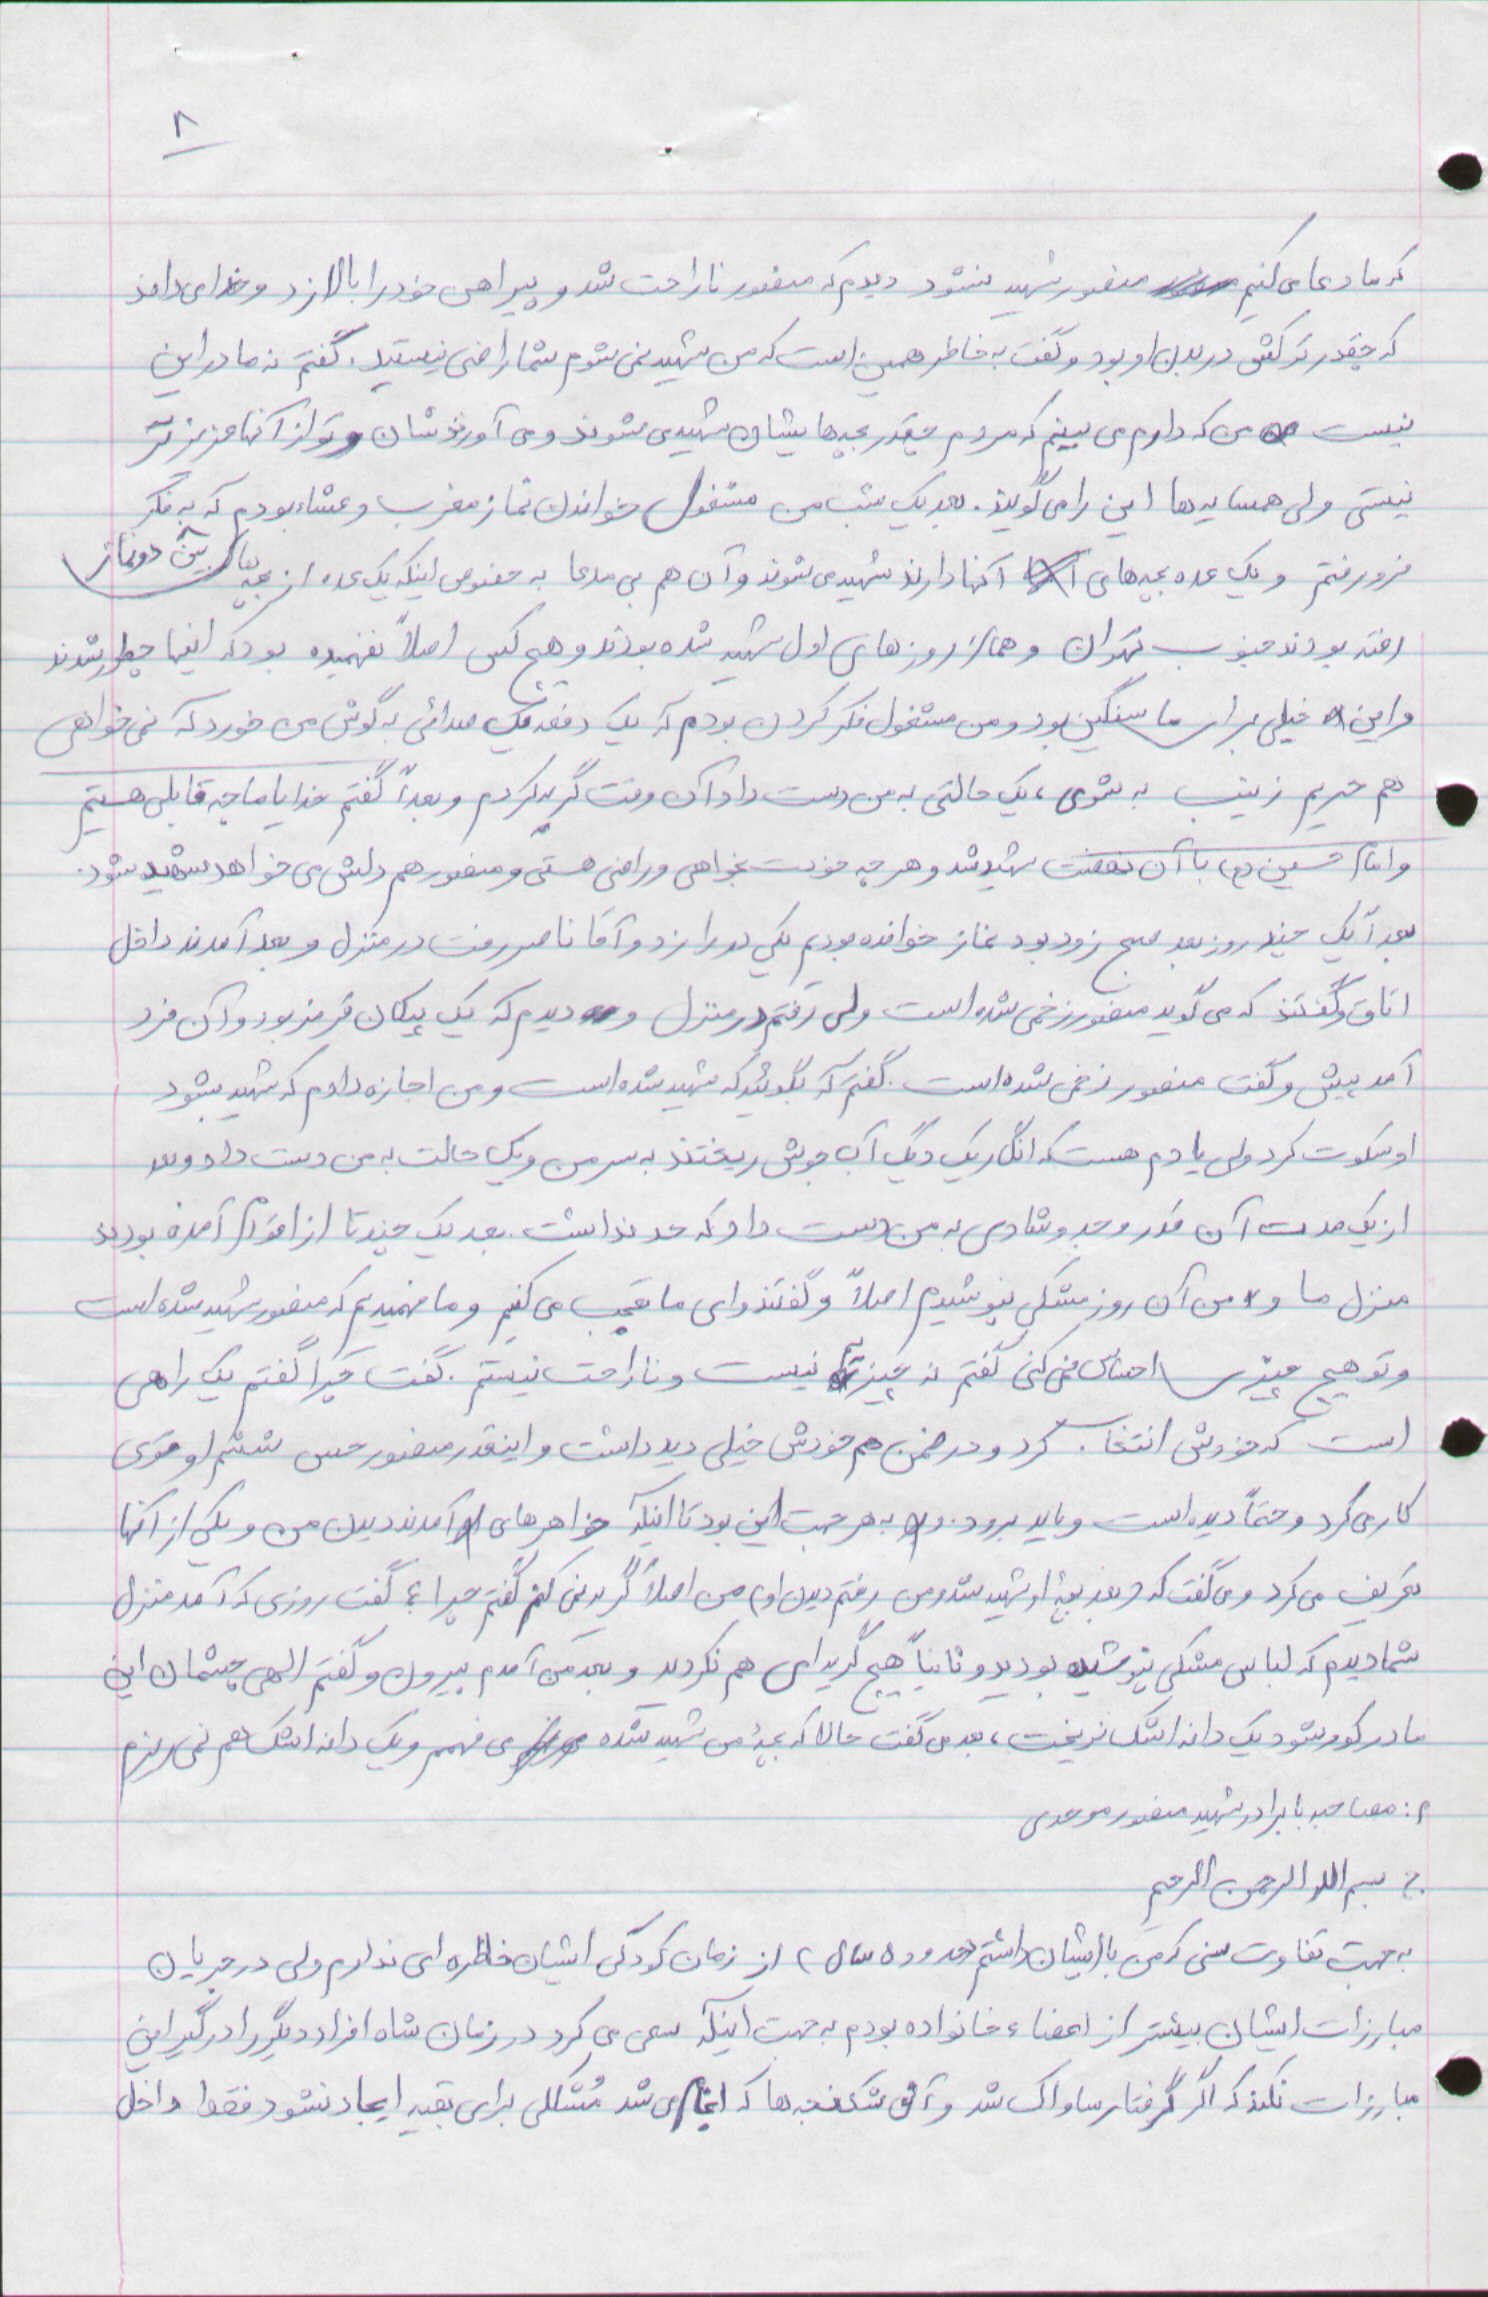 ۸
که ما دعا می کنیم منصور شهید نشود دیدم که منصور ناراحت شد و پیراهن خود را بالا زد و خدا می داند
که چقدر ترکش در بدن او بود و گفت به خاطر همین است که من شهید نمی شوم شما راضی نیستید. گفتم نه مادر این
نیست من که دارم می بینم که مردم چقدر بچه هایشان شهید می شوند و می آورندشان و تو از آنها عزیزتر
نیستی ولی همسایه ها این را می گویند. بعد یک شب من مشغول خواندن نماز مغرب و عشاء بودم که به فکر
بین دو نماز
فرو رفتم و یک عده بچه های آنها دارند شهید می شوند و آن هم بی مدعا به خصوص اینکه یک عده از بچه ها
رفته بودند جنوب تهران و همان روزهای اول شهید شده بودند و هیچ کس اصلاً نفهمیده بود که اینها چطور شدند
و این خیلی برای ما سنگین بود و من مشغول فکر کردن بودم که یک دفعه یک صدائی به گوش من خورد که نمی خواهی
هم حریم زینب به شوی، یک حالتی به من دست داد آن وقت گریه کردم و بعداً گفتم خدایا ما چه قابل هستیم
و امام حسین (ع) با آن نهضت شهید شد و هر چه خودت بخواهی و راضی هستی و منصور هم دلش می خواهد شهید شود.
بعداً یک چند روز بعد صبح زود بود نماز خوانده بودم یکی در را زد و آقا ناصر رفت در منزل و بعد آمدند داخل
اتاق و گفتند که می گوید منصور زخمی شده است ولی رفتم در منزل و دیدم که یک پیکان قرمز بود و آن فرد
آمد پیش و گفت منصور زخمی شده است. گفتم که بگوئید که شهید شده است و من اجازه دادم که شهید بشود
او سکوت کرد ولی یادم هست که انگار یک دیگ آب جوش ریختند به سر من و یک حالت به من دست داد و بعد
از یک مدت آن قدر وجد و شادی به من دست داد که حد نداشت. بعد یک چند تا از اقوام آمده بودند
منزل ما و من آن روز مشکی نپوشیدم اصلاً و گفتند وای ما تعجب می کنیم و ما فهمیدیم که منصور شهید شده است
و تو هیچ چیزی احساس نمی کنی گفتم نه چیزی نیست و ناراحت نیستم. گفت چرا گفتم یک راهی
است که خودش انتخاب کرد و در ضمن هم خودش خیلی دید داشت و اینقدر منصور حس ششم او قوی
کار می کرد و حتماً دیده است و باید برود. به هر جهت این بود تا اینکه خواهرهای آمدند دیدن من و یکی از آنها
تعریف می کرد و می گفت که (بعد بچهٔ او شهید شد و من رفتم دیدن او) من اصلاً گریه نمی کنم گفتم چرا؟ گفت روزی که آمد منزل
شما دیدم که لباس مشکی نپوشیده بودید و ثانیاً هیچ گریه ای هم نکردید و بعد من آمدم بیرون و گفتم الهی چشمان این
مادر کور شود یک دانه اشک نریخت، بعد می گفت حالا که بچهٔ من شهید شده می فهمم و یک دانه اشک هم نمی ریزم
م: مصاحبه با برادر شهید منصور موحدی
ج بسم الله الرحمن الرحیم
به جهت تفاوت سنی که من با ایشان داشتم (حدود ۵ سال) از زمان کودکی ایشان خاطره ای ندارم ولی در جریان
مبارزات ایشان بیشتر از اعضاء خانواده بودم به جهت اینکه سعی می کرد در زمان شاه افراد دیگر را درگیر این
مبارزات نکند که اگر گرفتار ساواک شد و آن شکنجه ها که انجام می شد مُشکلی برای بقیه ایجاد نشود فقط داخل